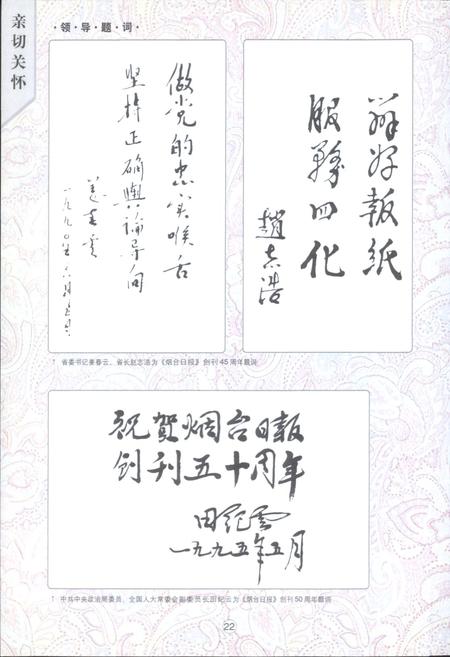 亲切关怀
·领·导·题·词·
做党的忠实喉舌
坚持正确舆论导向
姜春云
一九九〇年六月
办好报纸
服务四化
赵志浩
↑ 省委书记姜春云、省长赵志浩为《烟台日报》创刊45周年题词
祝贺烟台日报
创刊五十周年
田纪云
一九九五年五月
↑ 中共中央政治局委员、全国人大常委会副委员长田纪云为《烟台日报》创刊50周年题词
22